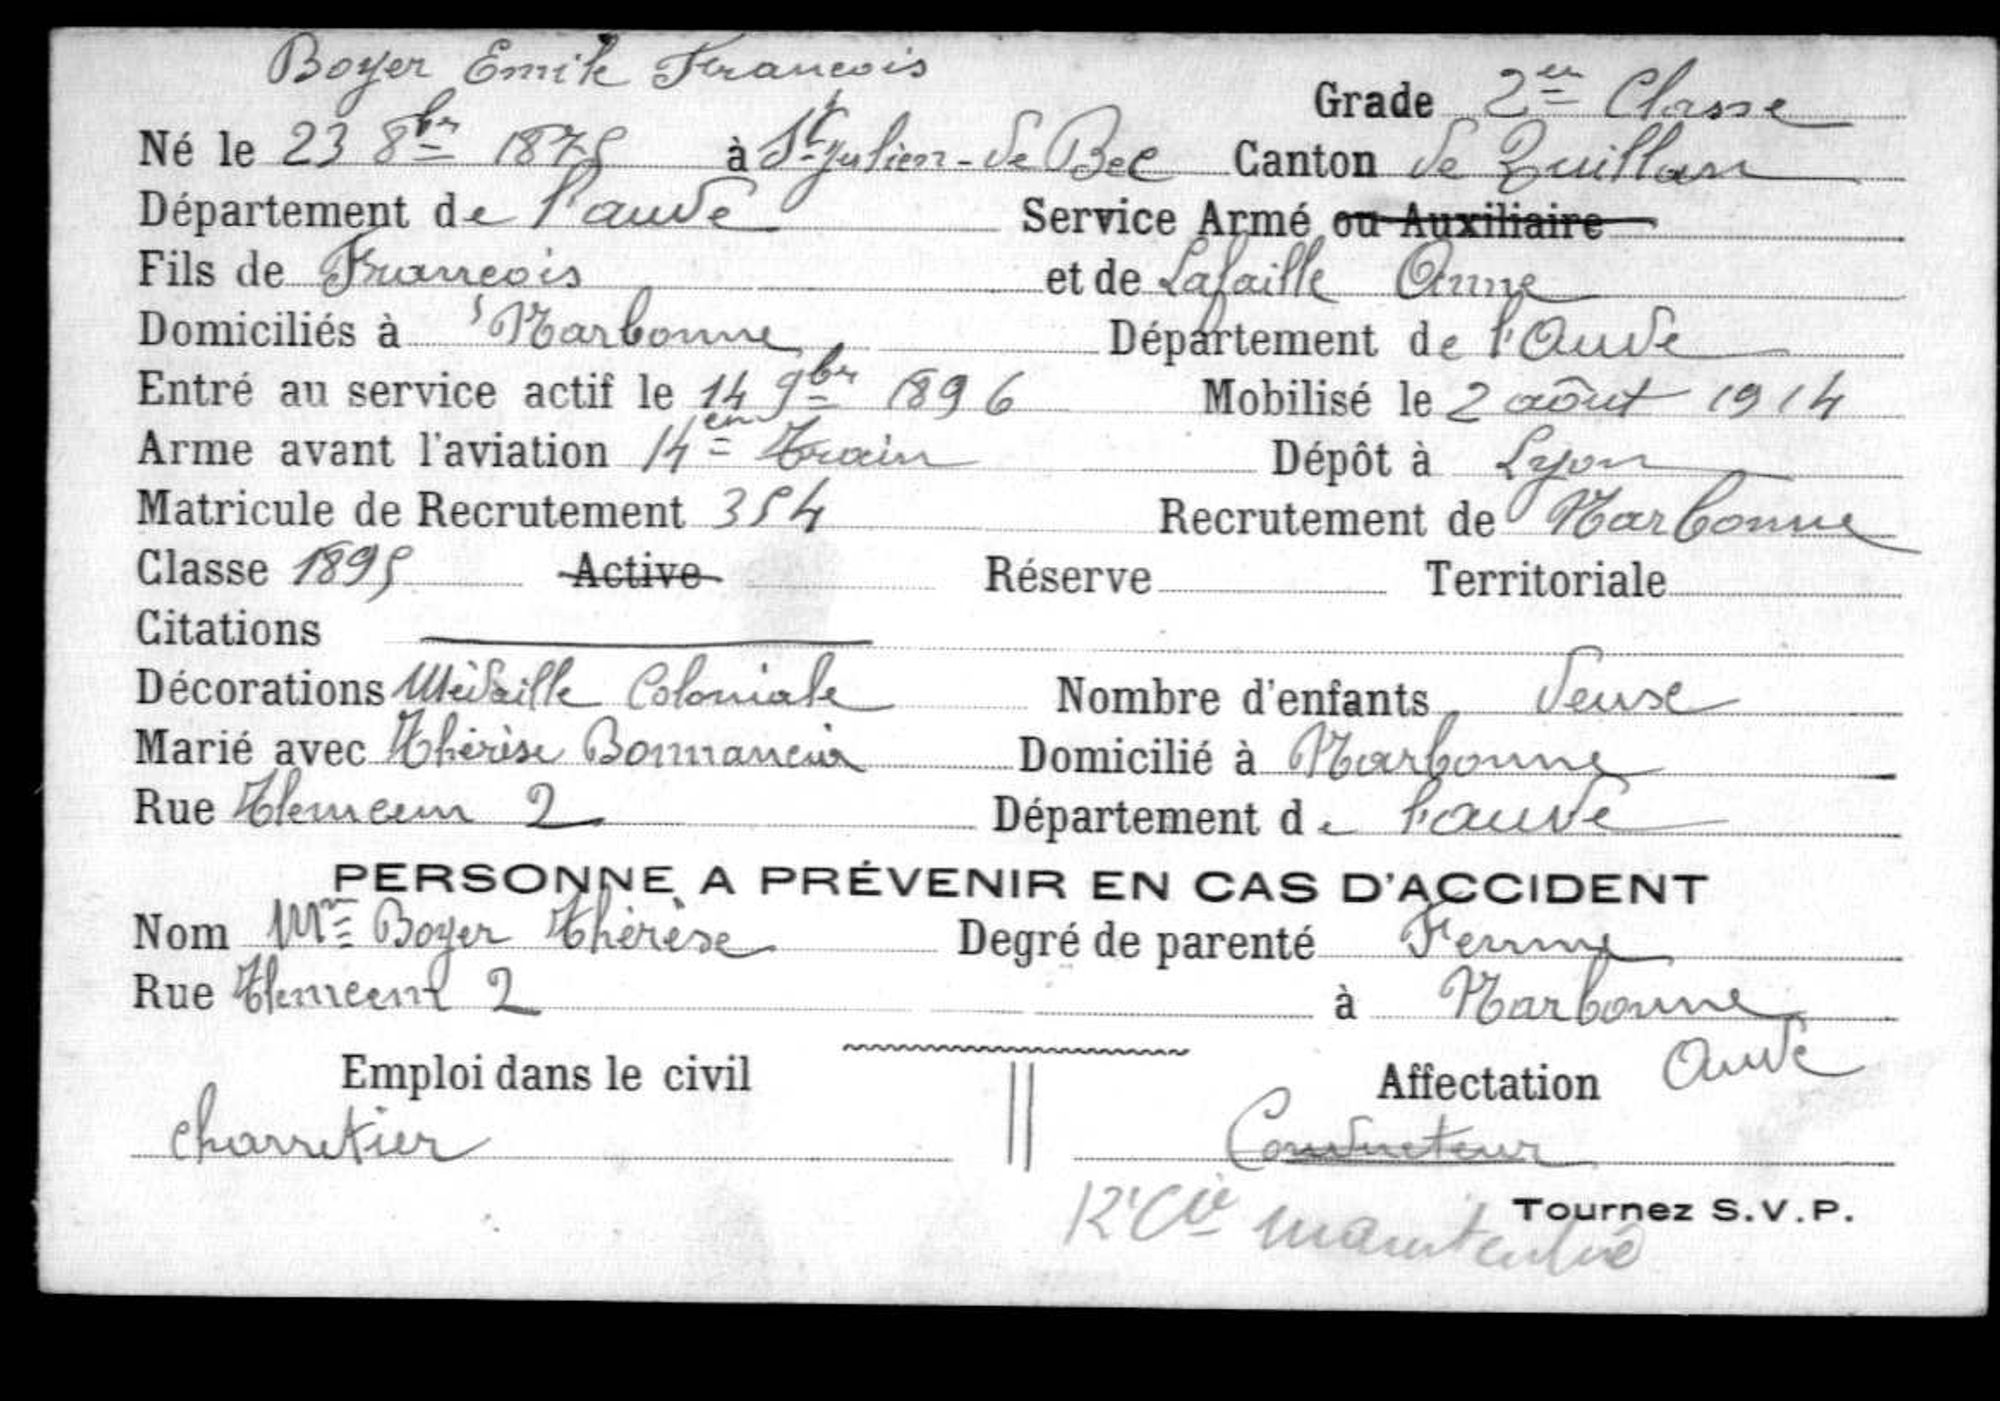 Boyer Emile Francois
Grade 2em Classe
Né le 23 8bre 1875 à St Julien-de Bec Canton de Quillan
Département de l'aude Service Armé ou Auxiliaire
Fils de Francois et de Lafaille Anne
Domiciliés à Narbonne Département de l'Aude
Entré au service actif le 14 9bre 1896 Mobilisé le 2 août 1914
Arme avant l'aviation 14em Train Dépôt à Lyon
Matricule de Recrutement 354 Recrutement de Narbonne
Classe 1895 Active Réserve Territoriale
Citations
Décorations Médaille Coloniale Nombre d'enfants
Marié avec Thérèse Domicilié à Narbonne
Rue Tlemcem 2 Département de l'aude
PERSONNE A PRÉVENIR EN CAS D'ACCIDENT
Nom Mme Boyer Thérèse Degré de parenté Femme
Rue Tlemcem 2 à Narbonne
Aude
Emploi dans le civil Affectation
charretier Conducteur
Tournez S.V.P.
Cie